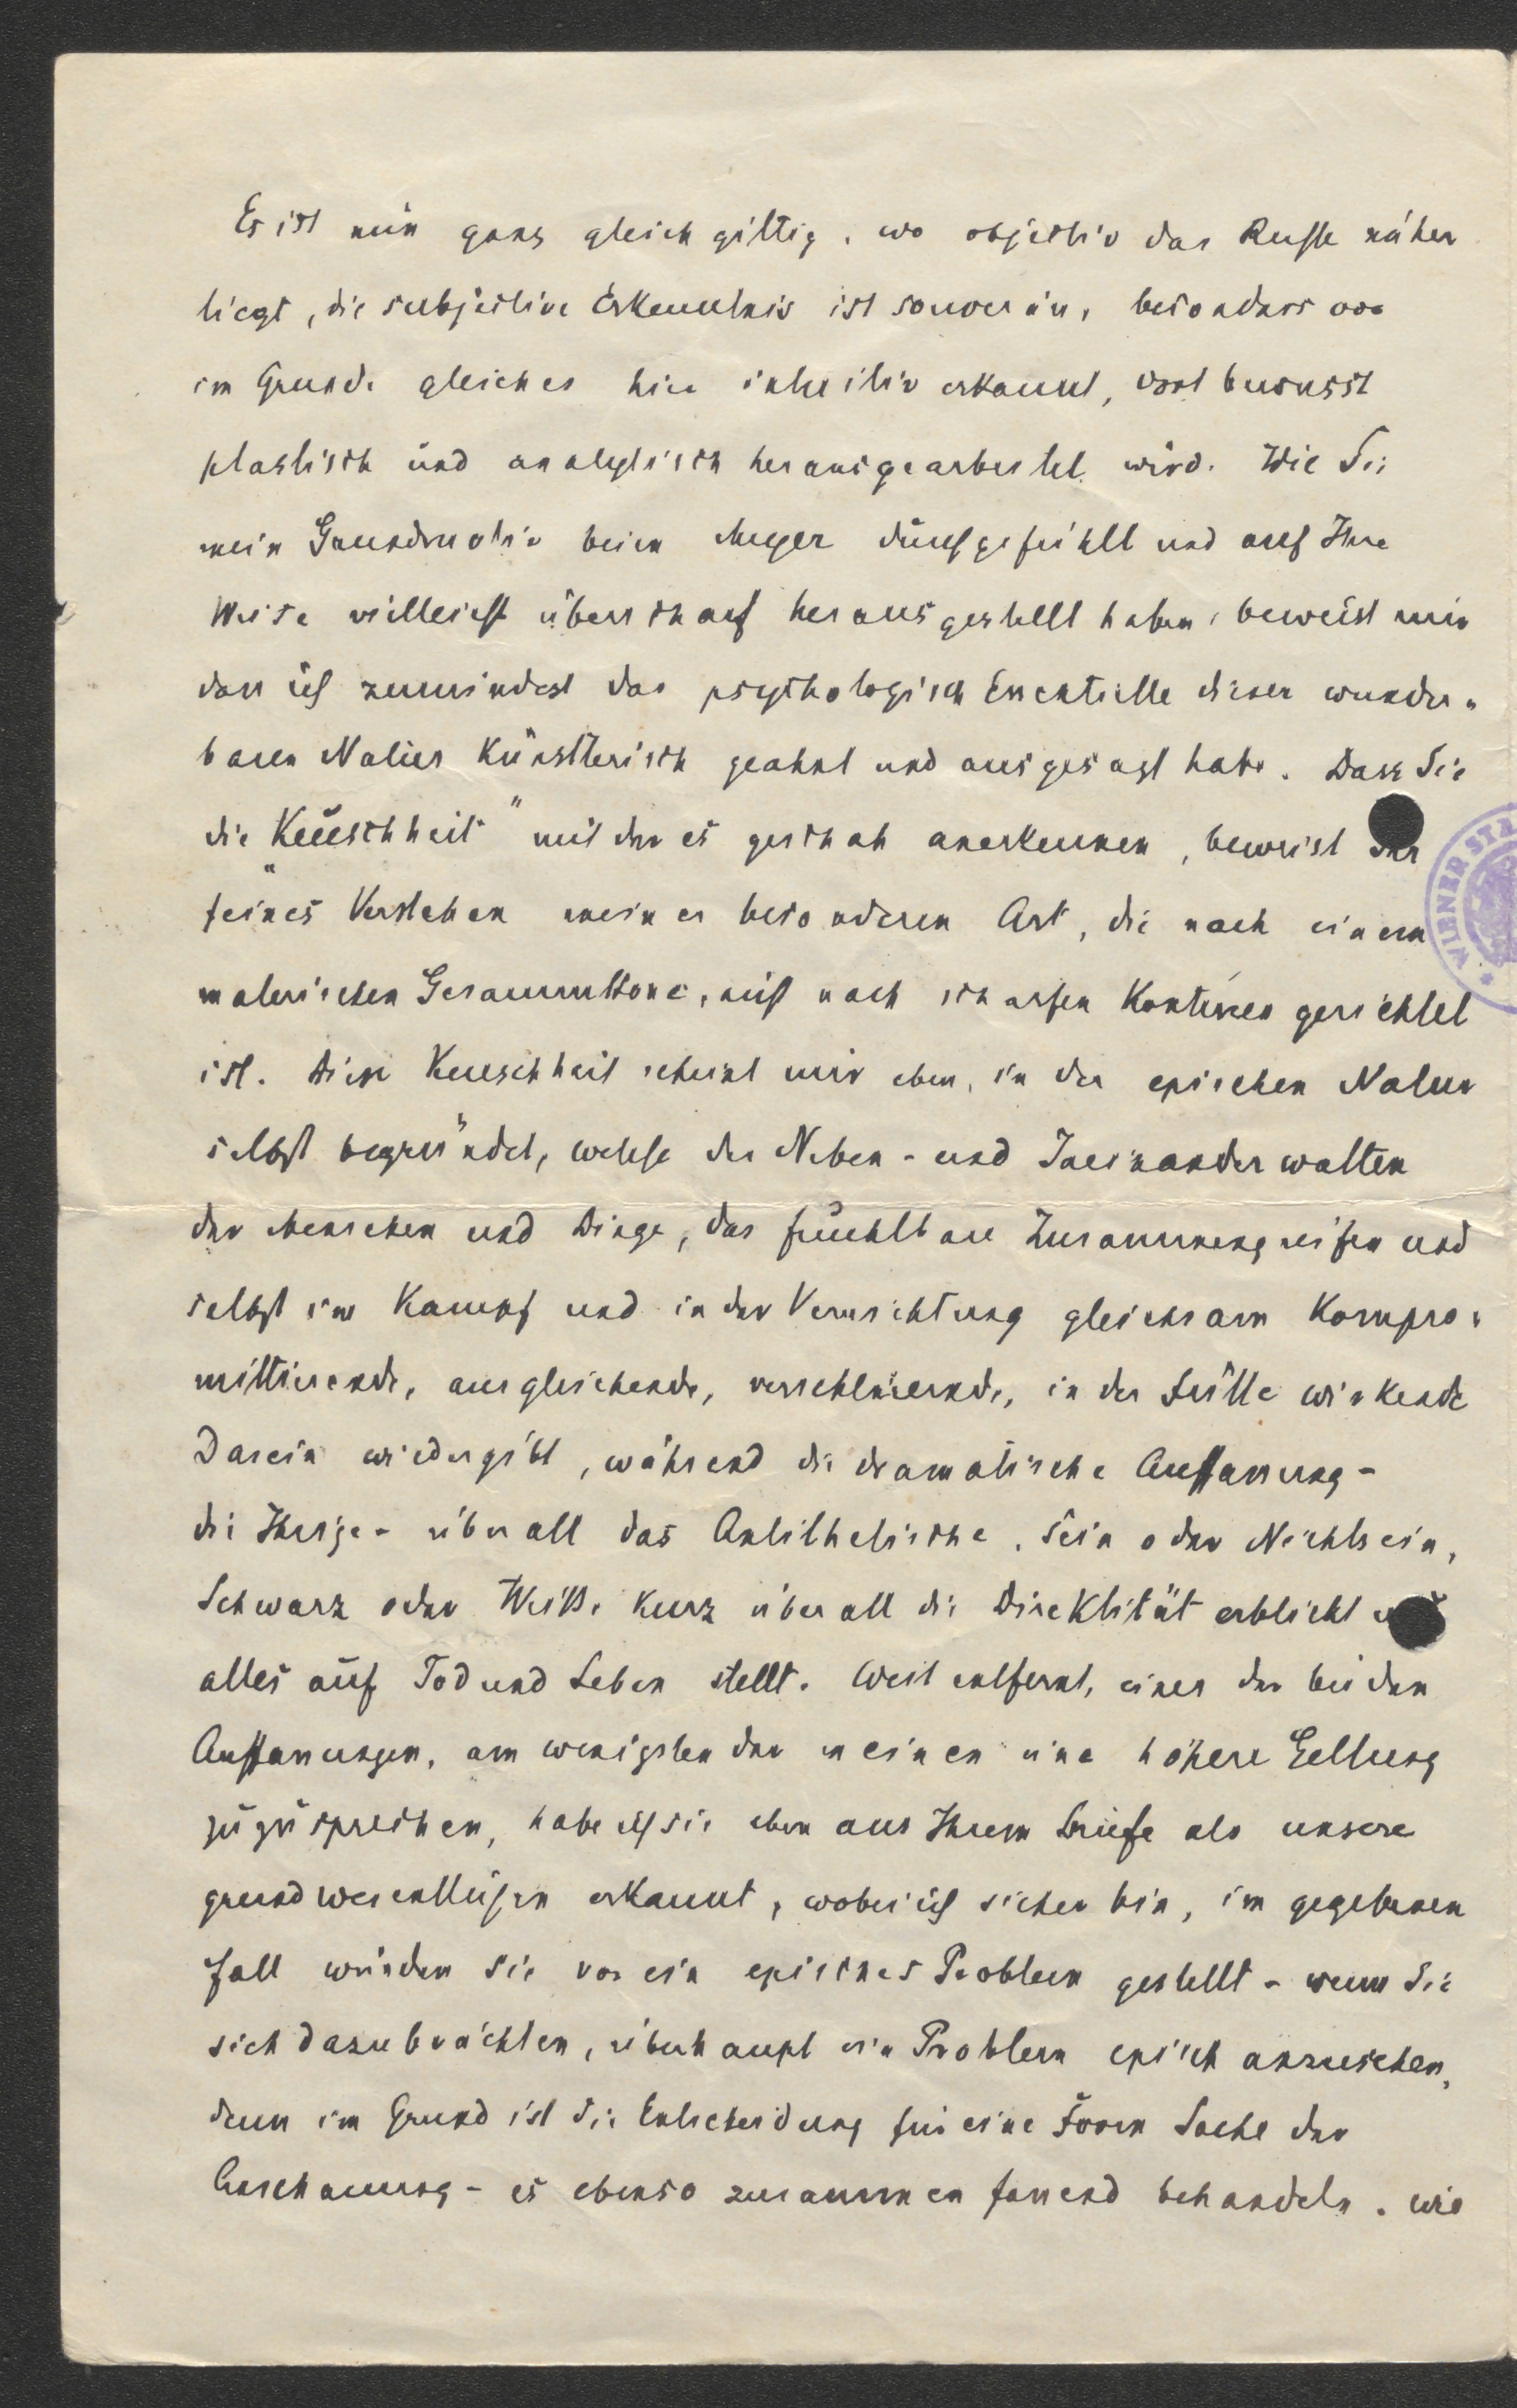 Es ist nun ganz gleichgiltig, wo objectiv das Rechte näher
liegt, die subjective Erkenntnis ist souverän, besonders wo
im Grunde gleiches hier intuitiv erkannt, dort bewusst
plastisch und analytisch herausgearbeitet wird. Wie Sie
mein Grundmotiv beim Meyer durchgefühlt und auf Ihre
Weise vielleicht überscharf herausgestellt haben, beweist mir
dass ich zumindest das psychologisch Essentielle dieser wunder-
baren Natur künstlerisch geahnt und ausgesagt habe. Dass Sie
die „Keuschheit" mit der es geschah anerkennen, beweist Ihr
feines Verstehen meiner besonderen Art, die nach einem
malerischen Gesammttone, nicht nach scharfen Konturen gerichtet
ist. Diese Keuschheit scheint mir eben, in der epischen Natur
selbst begründet, welche das Neben- und Ineinanderwalten
der Menschen und Dinge, das fruchtbare Zusammengreifen und
selbst im Kampf und in der Vernichtung gleichsam Kompro-
mittierende, ausgleichende, verschleiernde, in der Stille wirkende
Dasein wiedergibt, während die dramatische Auffassung -
die Ihrige - überall das Antithetische, Sein oder Nichtsein,
Schwarz oder Weiß, kurz überall die Direktität erblickt und
alles auf Tod und Leben stellt. Weit entfernt, einer der beiden
Auffassungen, am wenigsten der meinen eine höhere Geltung
zuzusprechen, habe ich sie eben aus Ihrem Briefe als unsere
grundwesentlichen erkannt, wobei ich sicher bin, im gegebenen
Fall würden Sie vor ein episches Problem gestellt - wenn Sie
sich dazu brächten, überhaupt ein Problem episch anzusehen,
denn im Grund ist die Entscheidung für eine Form Sache der
Anschauung - es ebenso zusammenfassend behandeln, wie
WIENER STA